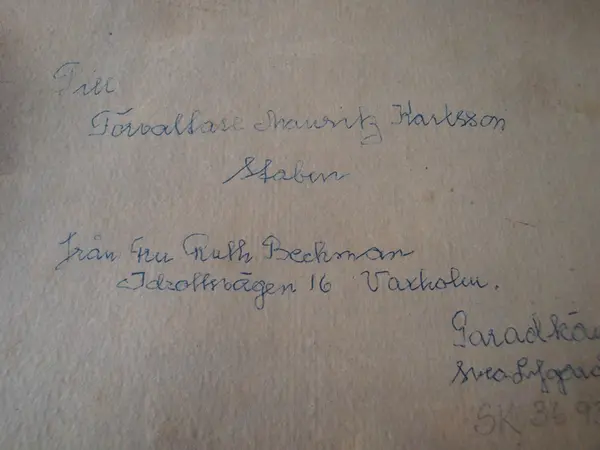 Till
Förvaltare Mauritz Karlsson
Staben
från Fru Ruth Beckman
Idrottsvägen 16 Vaxholm.
Paradkå
Svea
SK 36 93